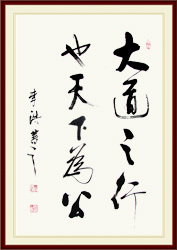 大道之行
也天下為公